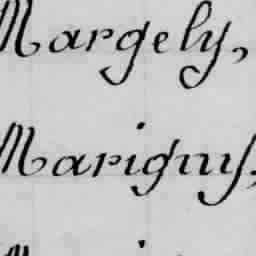 Margely,
Marigny,